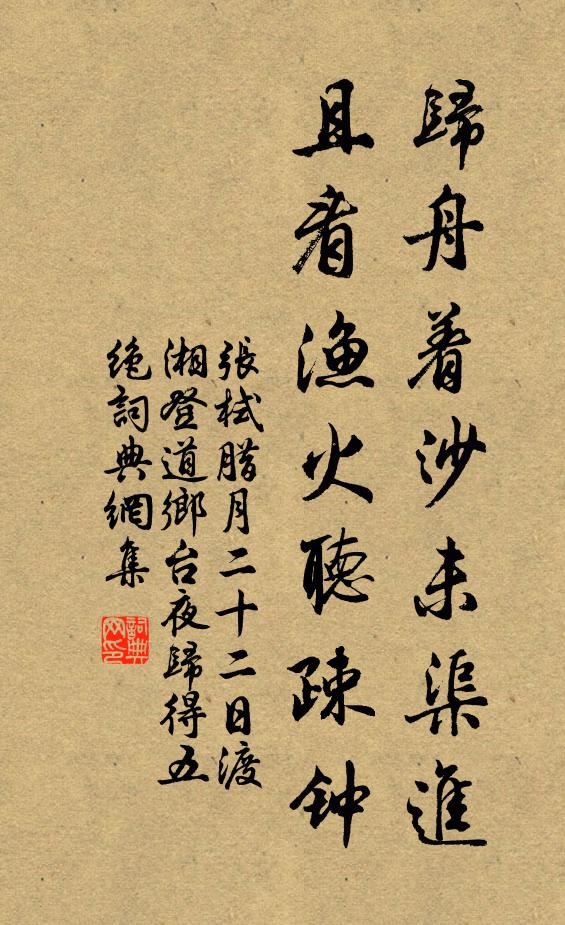 歸舟着沙未渠進
且看漁火聽疎钟
張栻腊月二十二日渡
湘登道鄉台夜歸得五
绝詞典網集
詞典网印